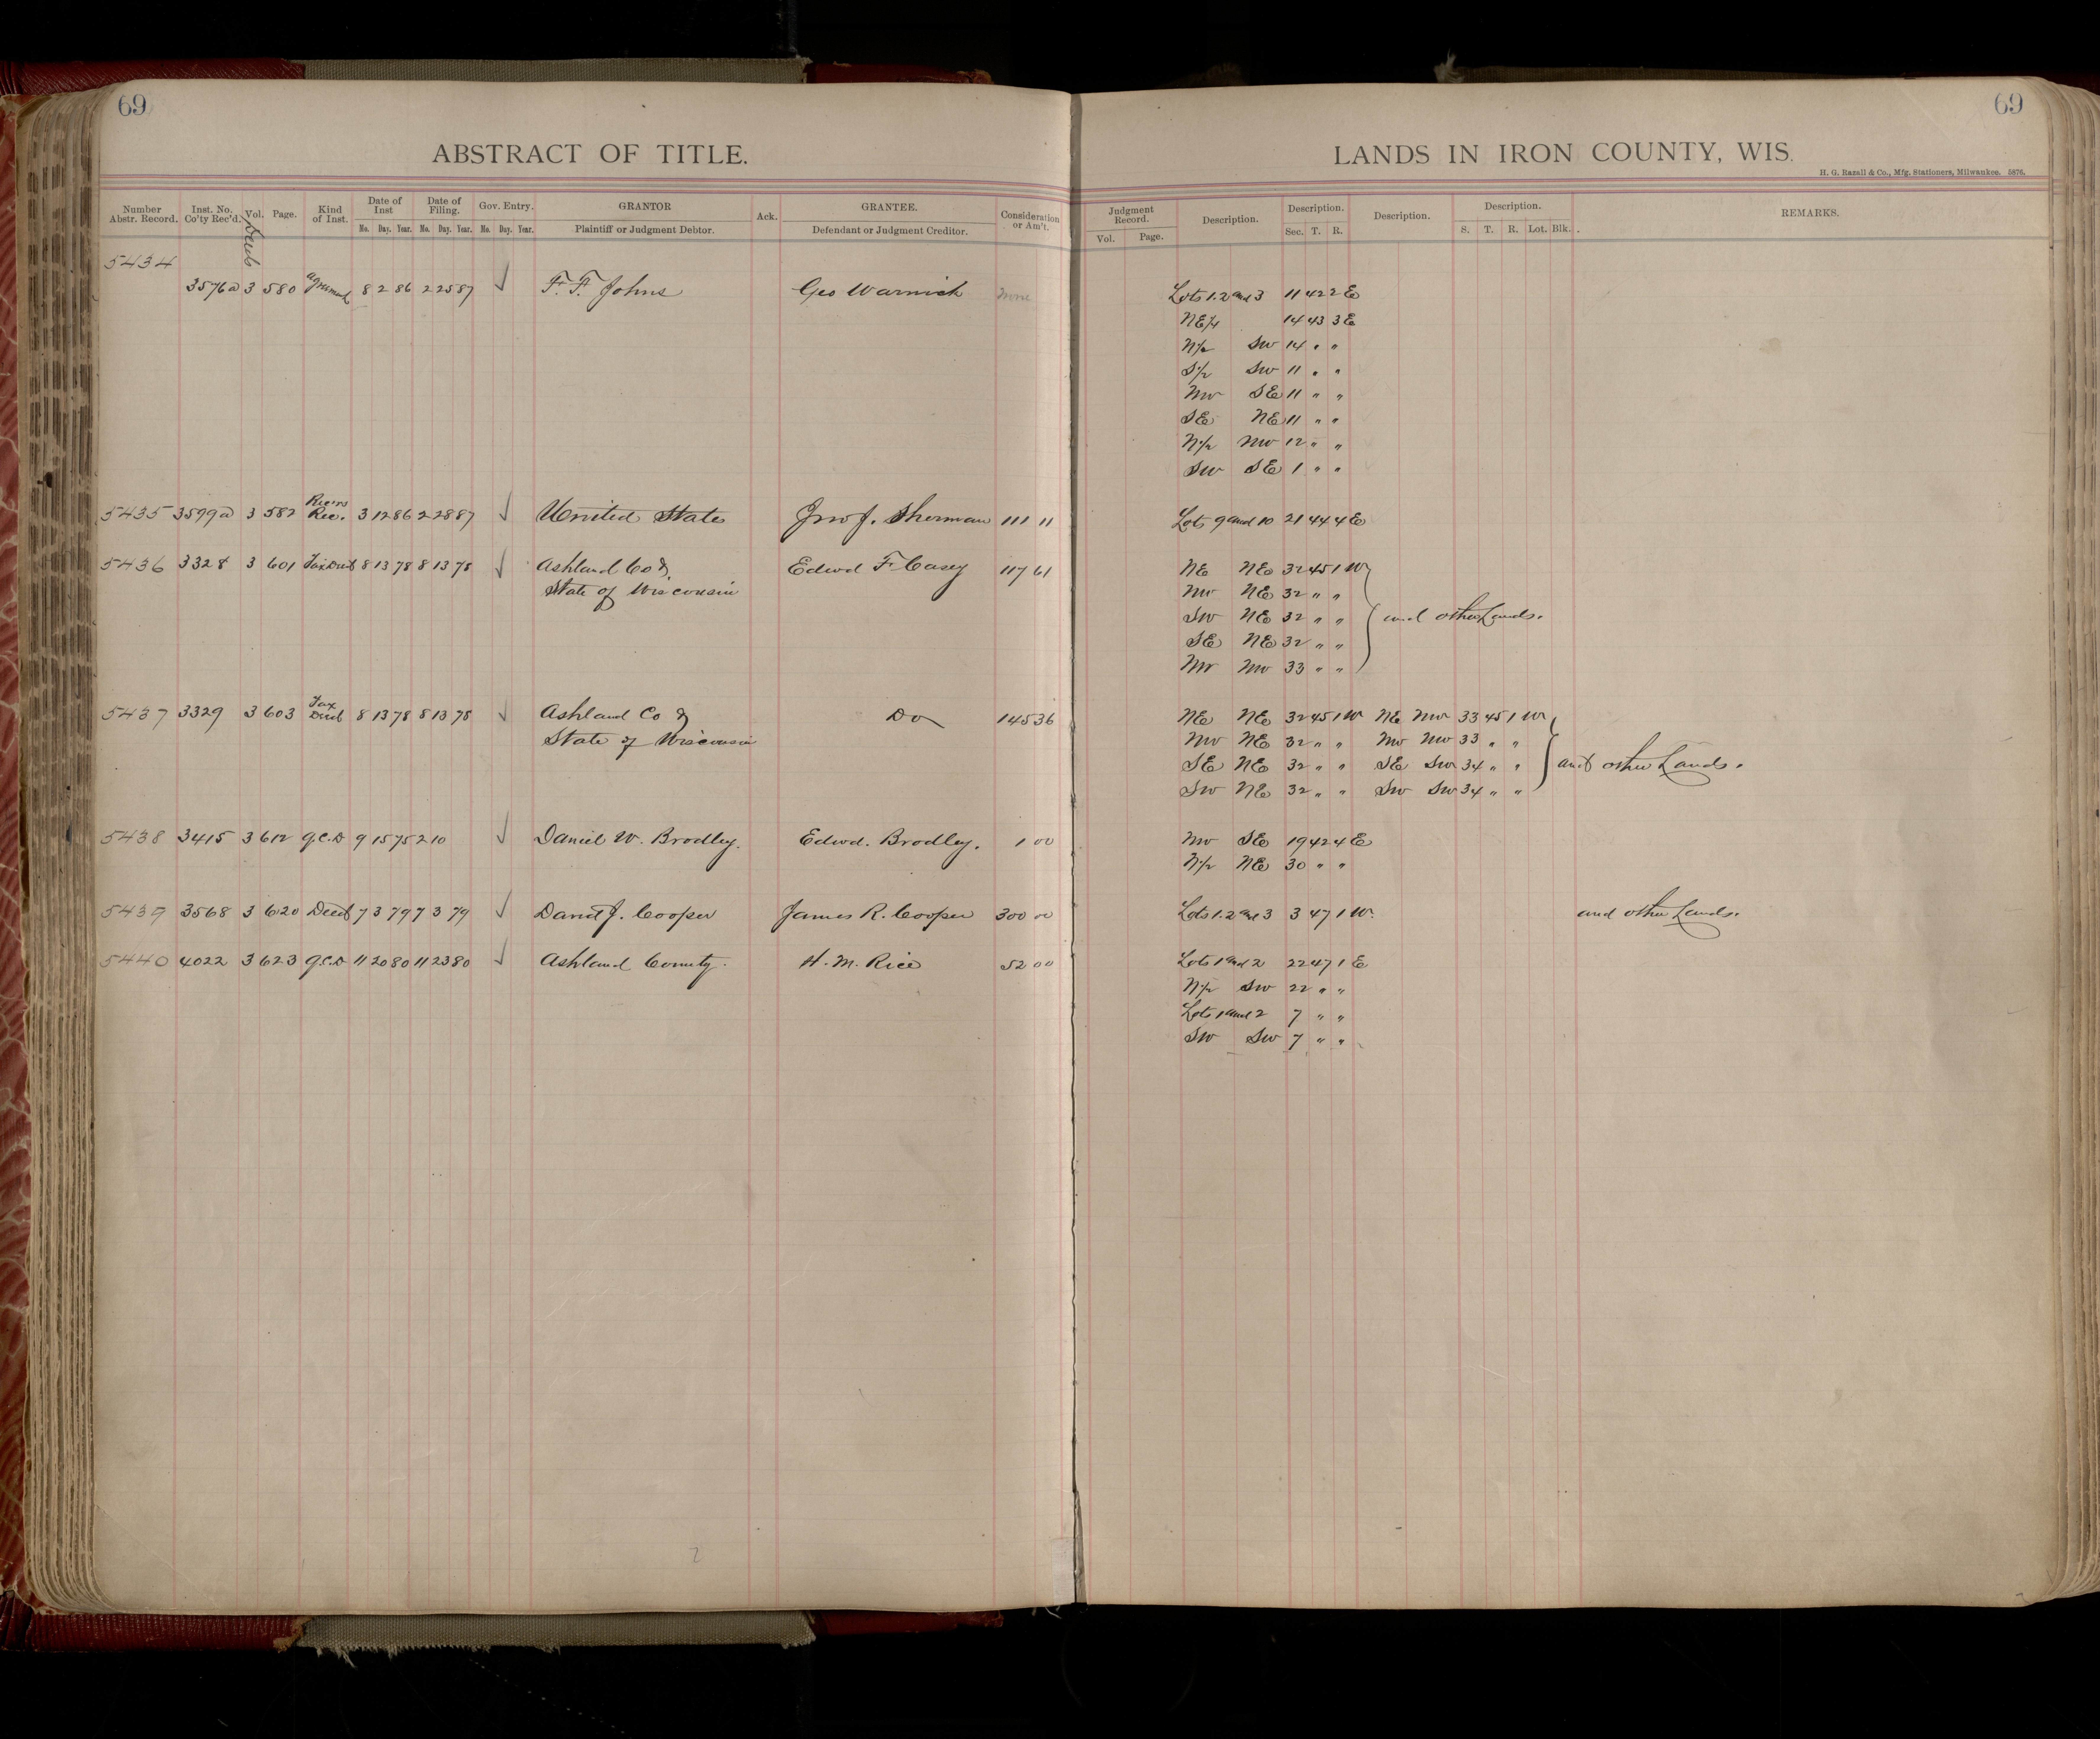 69
69
ABSTRACT OF TITLE.
LANDS IN IRON COUNTY, WIS.
H. G. Razall & Co., Mfg. Stationers, Milwaukee. 5876.
Number Abstr. Record. Inst. No. Co'ty Rec'd. Vol. Page. Kind of Inst. Date of Inst Date of Filing. Gov. Entry. GRANTOR Ack. GRANTEE. Consideration or Am't.
Mo. Day. Year. Mo. Day. Year. Mo. Day. Year. Plaintiff or Judgment Debtor. Defendant or Judgment Creditor.
Judgment Record. Description. Description. Description. Description. REMARKS.
Vol. Page. Sec. T. R. S. T. R. Lot. Blk.
Deeds
5434
3576a 3 580 Agreement 8 2 86 2 25 87 √ F. F. Johns Geo Warnick None Lots 1. 2 and 3 11 42 2 E
NE/4 14 43 3 E
N/2 SW 14 " "
S/2 SW 11 " "
NW SE 11 " "
SE NE 11 " "
N/2 NW 12 " "
SW SE 1 " "
5435 3599a 3 582 Rec'rs Rec. 3 12 86 2 28 87 √ United States Jno J. Sherman 111 11 Lots 9 and 10 21 44 4 E
5436 3328 3 601 Tax Deed 8 13 78 8 13 78 √ Ashland Co & Edwd F Casey 117 61 NE NE 32 45 1 W
State of Wisconsin NW NE 32 " "
SW NE 32 " " and other Lands.
SE NE 32 " "
NW NW 33 " "
5437 3329 3 603 Tax Deed 8 13 78 8 13 78 √ Ashland Co & Do 145 36 NE NE 32 45 1 W NE NW 33 45 1 W
State of Wisconsin NW NE 32 " " NW NW 33 " "
SE NE 32 " " SE SW 34 " " and other Lands.
SW NE 32 " " SW SW 34 " "
5438 3415 3 612 Q.C.D 9 15 75 2 10 √ Daniel W. Brodley. Edwd. Brodley. 1 00 NW SE 19 42 4 E
N/2 NE 30 " "
5439 3568 3 620 Deed 7 3 79 7 3 79 √ David J. Cooper James R. Cooper 300 00 Lots 1. 2 and 3 3 47 1 W. and other Lands.
5440 4022 3 623 Q.C.D 11 20 80 11 23 80 √ Ashland County. H. M. Rice 52 00 Lots 1 and 2 22 47 1 E
N/2 SW 22 " "
Lots 1 and 2 7 " "
SW SW 7 " "